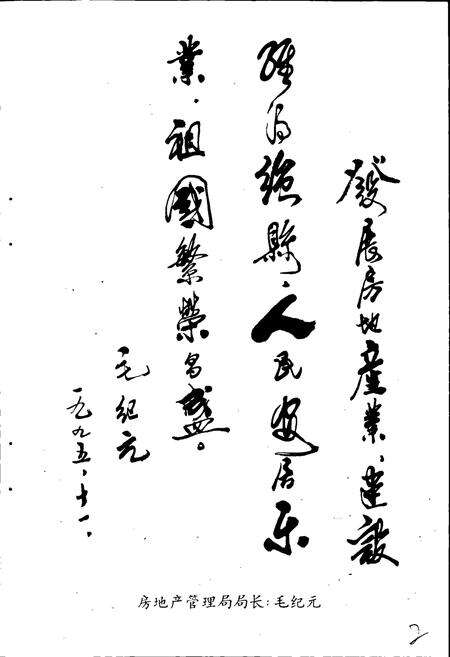 發展房地産業、建設
經濟強縣、人民安居乐
業、祖國繁榮昌盛。
毛纪元
一九九五、十一、
房地产管理局局长:毛纪元
2